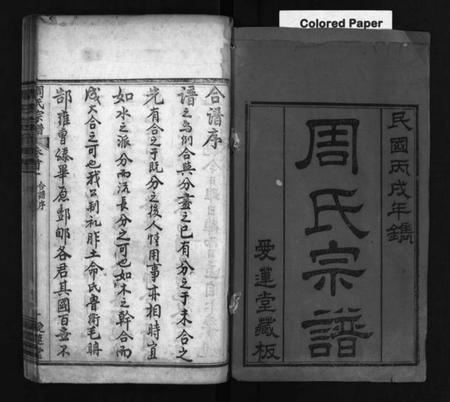 Colored Paper
民國丙戌年鐫
周氏宗譜
愛蓮堂藏板
合譜序
譜之為例合與分盡之已有分之于未合之
先有合之于既分之後人惟用事亦相時宜
如水之派分而流長分之可也如木之幹合而
成大合之可也我公制禮胙土命氏魯衛毛聃
郜雍曹滕畢原酆郇各君其國百世不
周氏宗譜
合譜序